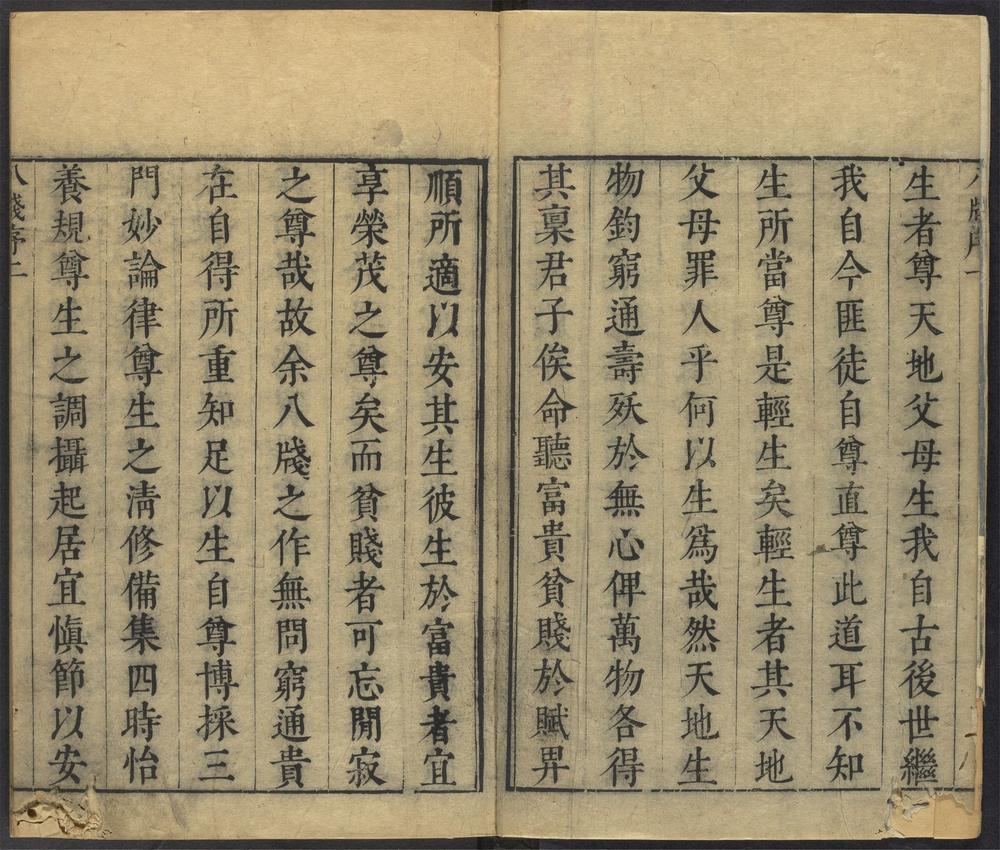 生者尊天地父母生我自古後世繼
我自今匪徒自尊直尊此道耳不知
生所當尊是輕生矣輕生者其天地
父母罪人乎何以生爲哉然天地生
物鈞窮通壽殀於無心俾萬物各得
其稟君子俟命聽富貴貧賤於賦畀
順所適以安其生彼生於富貴者宜
享榮茂之尊矣而貧賤者可忘閒寂
之尊哉故余八牋之作無問窮通貴
在自得所重知足以生自尊博採三
門妙論律尊生之清修備集四時怡
養規尊生之調攝起居宜愼節以安
八牋序二